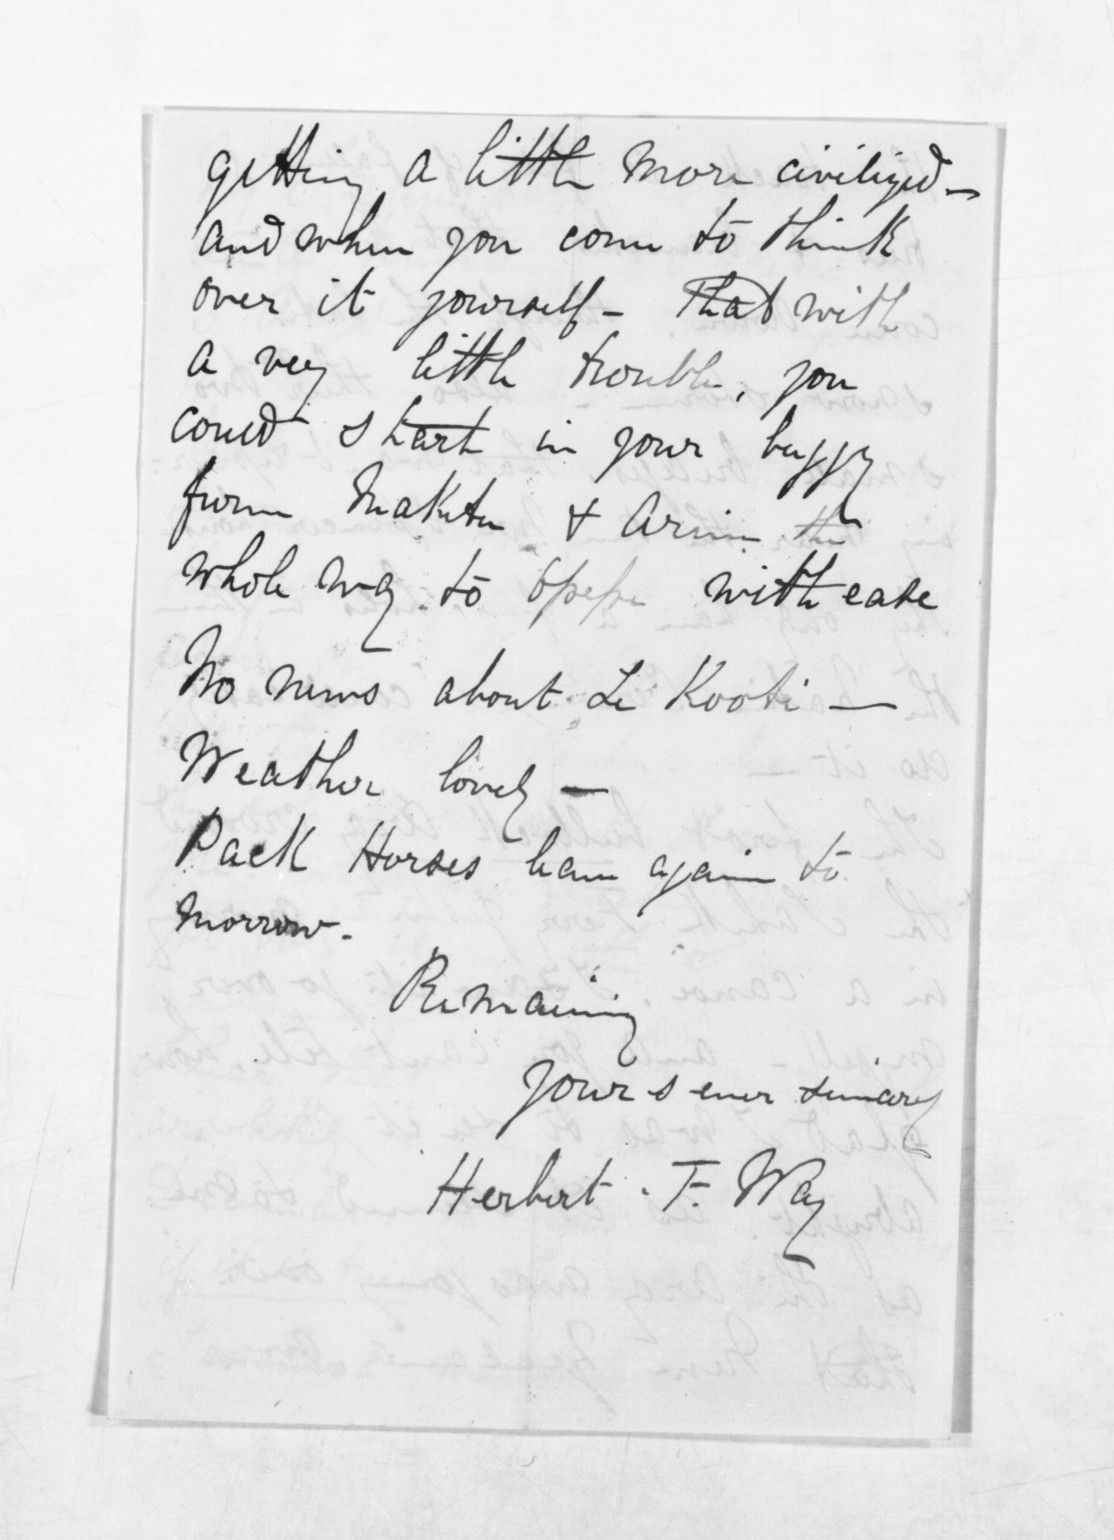 getting a little more civilized -
and when you come to think
over it yourself - That with
a very little trouble, you
could start in your buggy
from Maketu & drive the
whole way to Opepe with ease
No news about Te Kooti -
Weather lovely -
Pack Horses leave again to
morrow.
Remaining
yours ever sincerely
Herbert . F. Way